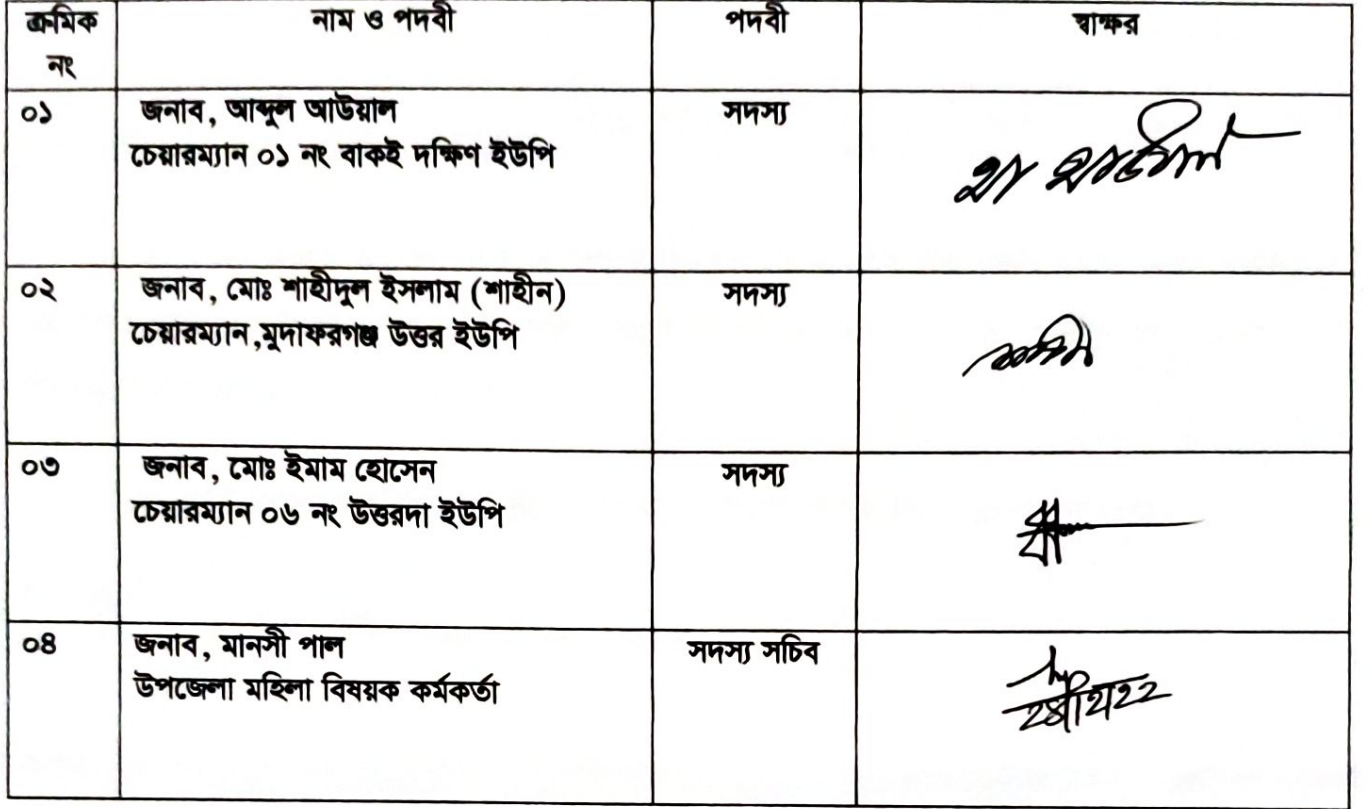 ক্রমিক নং
নাম ও পদবী
পদবী
স্বাক্ষর
০১
জনাব, আব্দুল আউয়াল
চেয়ারম্যান ০১ নং বাকই দক্ষিণ ইউপি
সদস্য
০২
জনাব, মোঃ শাহীদুল ইসলাম (শাহীন)
চেয়ারম্যান,মুদাফরগঞ্জ উত্তর ইউপি
সদস্য
০৩
জনাব, মোঃ ইমাম হোসেন
চেয়ারম্যান ০৬ নং উত্তরদা ইউপি
সদস্য
০৪
জনাব, মানসী পাল
উপজেলা মহিলা বিষয়ক কর্মকর্তা
সদস্য সচিব